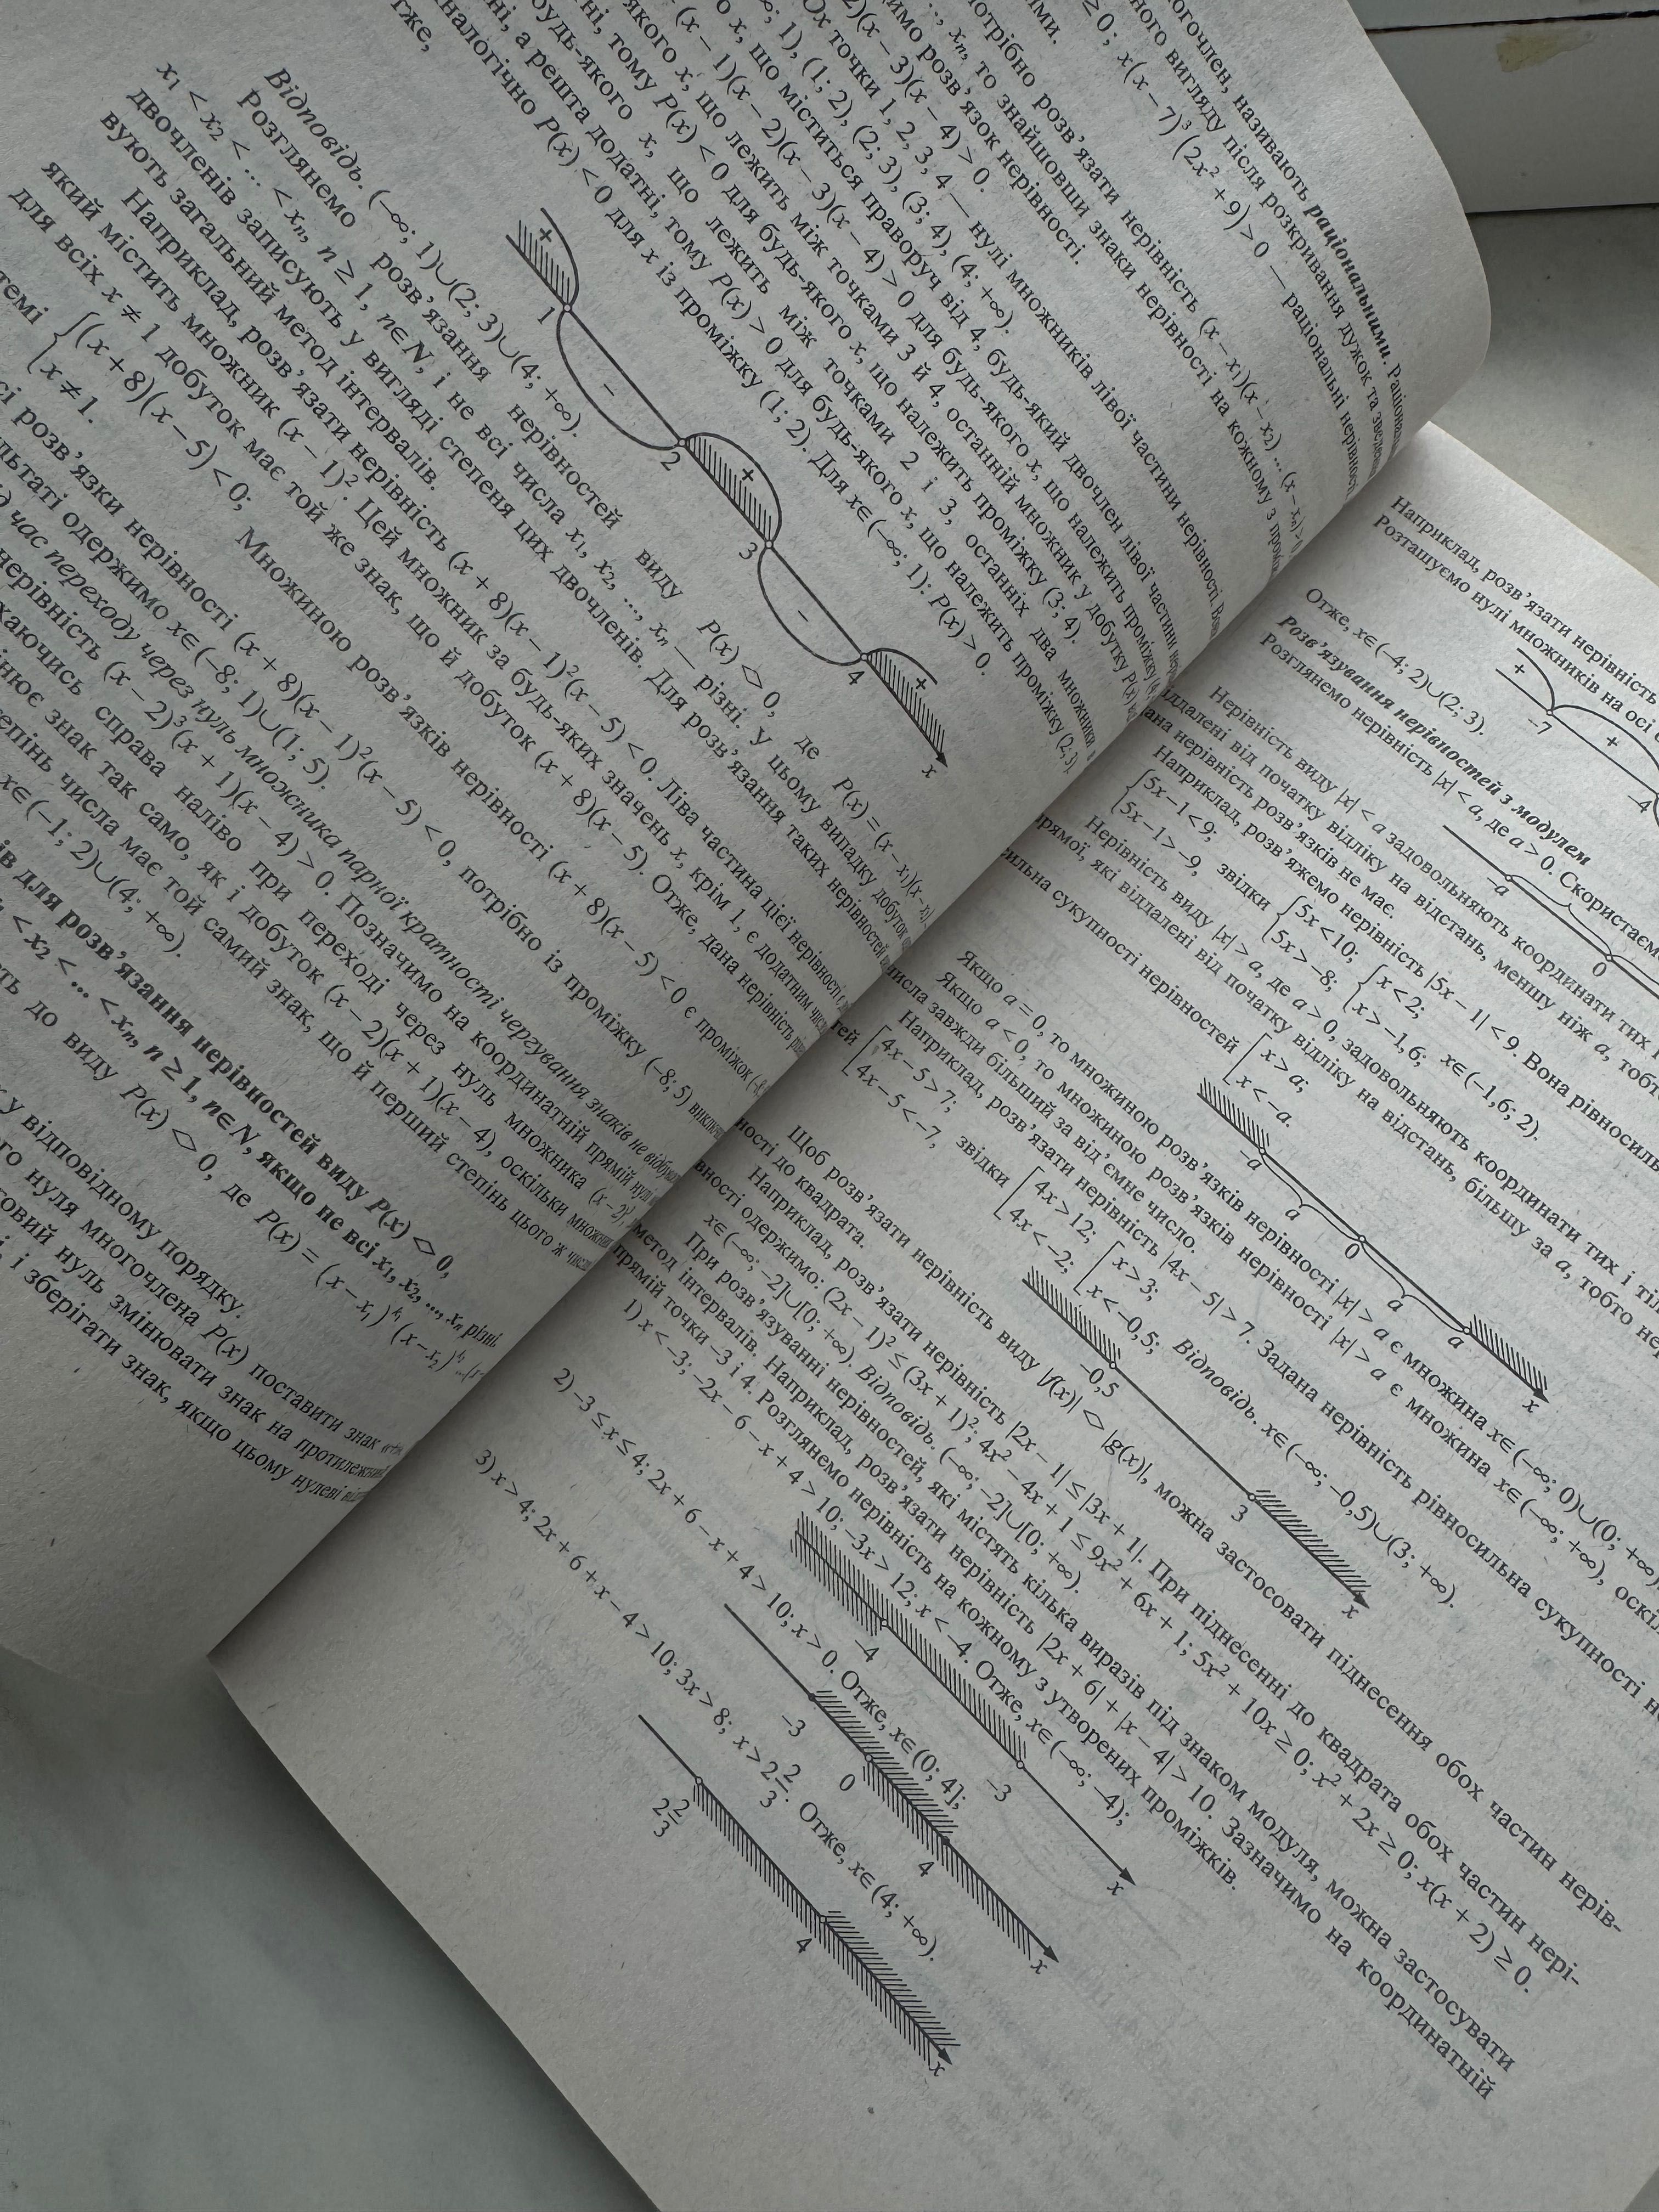 огочлен, називають раціональними.
ного вигляду після розкривання дужок та
≥ 0; x(x – 7)³(2x² + 9) > 0 — раціональні нерівності
ими.
потрібно розв’язати нерівність (x – x₁)(x – x₂) ... (x – xₙ) > 0
..., xₙ, то знайшовши знаки нерівності на кожному з
имо розв’язок нерівності.
2)(x – 3)(x – 4) > 0.
Ox точки 1, 2, 3, 4 — нулі множників лівої частини нерівності.
∞; 1), (1; 2), (2; 3), (3; 4), (4; +∞).
о x, що міститься праворуч від 4, будь-який двочлен лівої частини
(x – 1)(x – 2)(x – 3)(x – 4) > 0 для будь-якого x, що належить проміжку
якого x, що лежить між точками 3 й 4, останній множник у добутку P(x)
ні, тому P(x) < 0 для будь-якого x, що належить проміжку (3; 4).
будь-якого x, що лежить між точками 2 і 3, останніх два множники
ні, а решта додатні, тому P(x) > 0 для будь-якого x, що належить проміжку (2; 3).
налогічно P(x) < 0 для x із проміжку (1; 2). Для x∈(–∞; 1): P(x) > 0.
тже,
+ – + – +
1 2 3 4 x
Відповідь. (–∞; 1)∪(2; 3)∪(4; +∞).
Розглянемо розв’язання нерівностей виду P(x) <> 0, де P(x) = (x – x₁)(x – x₂)
x₁ < x₂ < ... < xₙ, n ≥ 1, n∈N, і не всі числа x₁, x₂, ..., xₙ — різні. У цьому випадку добуток
двочленів записують у вигляді степеня цих двочленів. Для розв’язання таких нерівностей
вують загальний метод інтервалів.
Наприклад, розв’язати нерівність (x + 8)(x – 1)²(x – 5) < 0. Ліва частина цієї нерівності
який містить множник (x – 1)². Цей множник за будь-яких значень x, крім 1, є додатним
для всіх x ≠ 1 добуток має той же знак, що й добуток (x + 8)(x – 5). Отже, дана нерівність
темі {(x + 8)(x – 5) < 0;
x ≠ 1.
Множиною розв’язків нерівності (x + 8)(x – 5) < 0 є проміжок
сі розв’язки нерівності (x + 8)(x – 1)²(x – 5) < 0, потрібно із проміжку (–8; 5)
льтаті одержимо x∈(–8; 1)∪(1; 5).
д час переходу через нуль множника парної кратності чергування знаків не
нерівність (x – 2)³(x + 1)(x – 4) > 0. Позначимо на координатній прямій нулі
хаючись справа наліво при переході через нуль множника (x – 2)³,
інює знак так само, як і добуток (x – 2)(x + 1)(x – 4), оскільки
епінь числа має той самий знак, що й перший степінь цього ж числа
x∈(–1; 2)∪(4; +∞).
ів для розв’язання нерівностей виду P(x) <> 0,
< x₂ < ... < xₙ, n ≥ 1, n∈N, якщо не всі x₁, x₂, ..., xₙ різні.
ть до виду P(x) <> 0, де P(x) = (x – x₁)^k₁ (x – x₂)^k₂ ...
к у відповідному порядку.
го нуля многочлена P(x) поставити знак
овий нуль змінювати знак на протилежний
і зберігати знак, якщо цьому нулеві
Наприклад, розв’язати нерівність
Розташуємо нулі множників на осі
+ +
–7 –4
Отже, x∈(–4; 2)∪(2; 3).
Розв’язування нерівностей з модулем
Розглянемо нерівність |x| < a, де a > 0. Скористаємо
–a 0
Нерівність виду |x| < a задовольняють координати тих
віддалені від початку відліку на відстань, меншу ніж a, тобто
нерівність розв’язків не має.
Наприклад, розв’яжемо нерівність |5x – 1| < 9. Вона рівносиль
{5x – 1 < 9; 5x – 1 > –9, звідки {5x < 10; 5x > –8; {x < 2; x > –1,6; x∈(–1,6; 2).
Нерівність виду |x| > a, де a > 0, задовольняють координати тих і тіль
прямої, які віддалені від початку відліку на відстань, більшу за a, тобто
сильна сукупності нерівностей [x > a; x < –a.
–a a 0 a a x
Якщо a = 0, то множиною розв’язків нерівності |x| > a є множина x∈(–∞; 0)∪(0; +∞)
Якщо a < 0, то множиною розв’язків нерівності |x| > a є множина x∈(–∞; +∞), оскіл
числа завжди більший за від’ємне число.
Наприклад, розв’язати нерівність |4x – 5| > 7. Задана нерівність рівносильна сукупності
тей [4x – 5 > 7; 4x – 5 < –7, звідки [4x > 12; 4x < –2; [x > 3; x < –0,5; Відповідь. x∈(–∞; –0,5)∪(3; +∞).
–0,5 3 x
Щоб розв’язати нерівність виду |f(x)| <> |g(x)|, можна застосовати піднесення обох частин нерів-
ності до квадрата.
Наприклад, розв’язати нерівність |2x – 1| ≤ |3x + 1|. При піднесенні до квадрата обох частин нері-
вності одержимо: (2x – 1)² ≤ (3x + 1)²; 4x² – 4x + 1 ≤ 9x² + 6x + 1; 5x² + 10x ≥ 0; x² + 2x ≥ 0; x(x + 2) ≥ 0.
x∈(–∞; –2]∪[0; +∞). Відповідь. (–∞; –2]∪[0; +∞).
При розв’язуванні нерівностей, які містять кілька виразів під знаком модуля, можна застосувати
метод інтервалів. Наприклад, розв’язати нерівність |2x + 6| + |x – 4| > 10. Зазначимо на координатній
прямій точки –3 і 4. Розглянемо нерівність на кожному з утворених проміжків.
1) x < –3; –2x – 6 – x + 4 > 10; –3x > 12; x < –4. Отже, x∈(–∞; –4);
–4 –3 x
2) –3 ≤ x ≤ 4; 2x + 6 – x + 4 > 10; x > 0. Отже, x∈(0; 4];
–3 0 4 x
3) x > 4; 2x + 6 + x – 4 > 10; 3x > 8; x > 2 2/3. Отже, x∈(4; +∞).
2 2/3 4 x